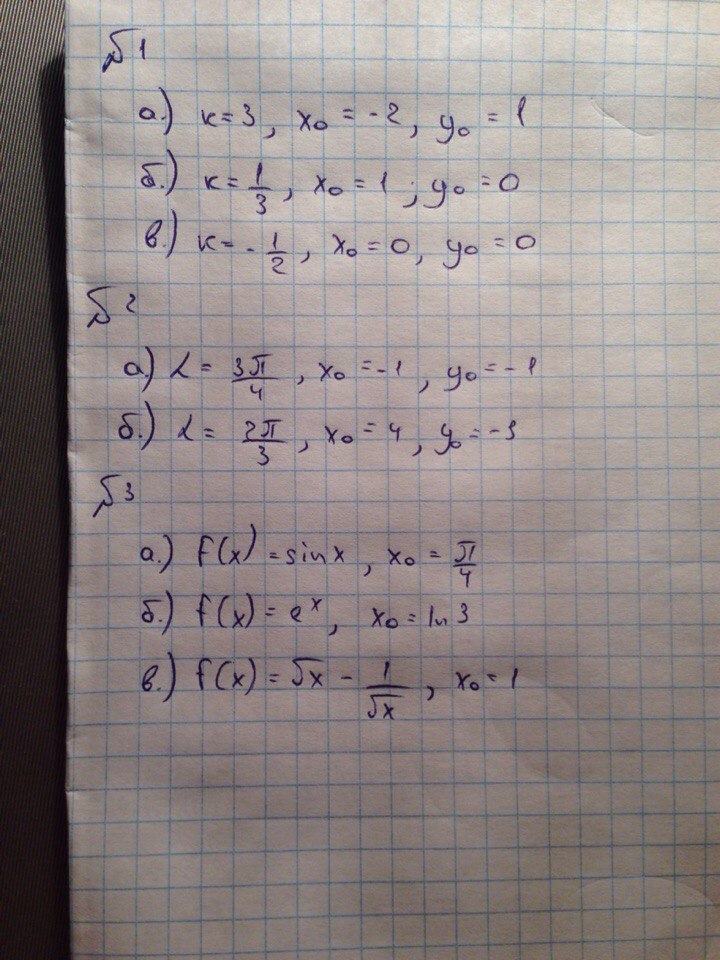 №1
а.) к=3, x₀ = -2, y₀ = 1
б.) к= 1/3, x₀ = 1 ; y₀ = 0
в.) к= - 1/2, x₀ = 0, y₀ = 0
№2
а) α = 3π/4, x₀ = -1, y₀ = -1
б.) α = 2π/3, x₀ = 4, y₀ = -3
№3
а.) f(x) = sin x, x₀ = π/4
б.) f(x) = eˣ, x₀ = ln 3
в.) f(x) = √x - 1/√x, x₀ = 1